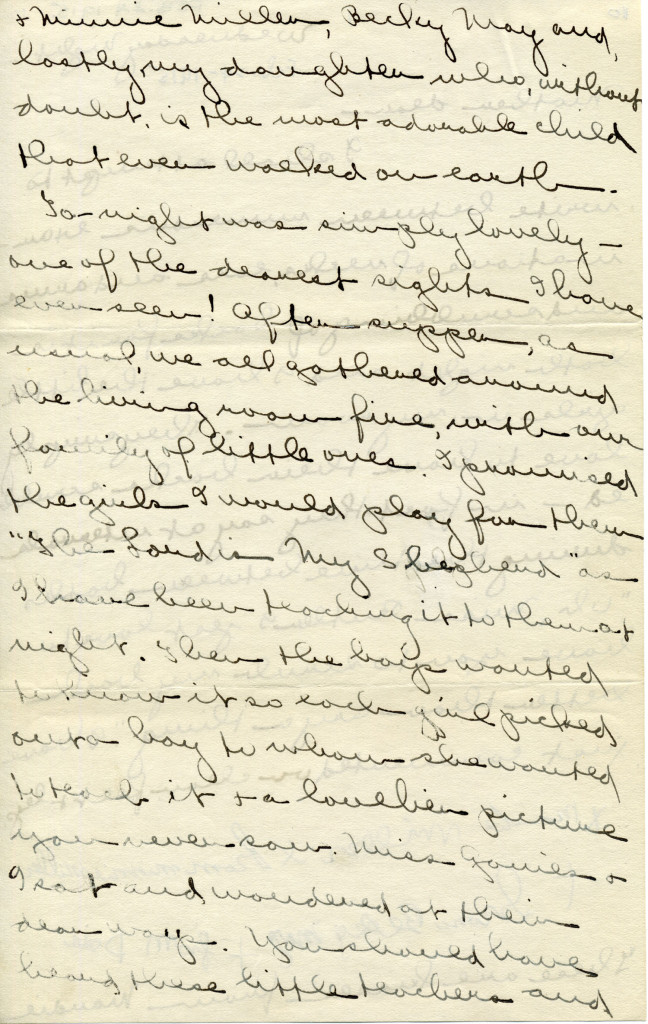 + Minnie Miller, Becky May and,
lastly, my daughter who, without
doubt, is the most adorable child
that ever walked on earth.
To-night was simply lovely -
one of the dearest sights I have
ever seen! After supper, as
usual, we all gathered around
the living room fire, with our
family of little ones. I promised
the girls I would play for them
"The Lord is My Shepherd" as
I have been teaching it to them at
night. Then the boys wanted
to know it so each girl picked
out a boy to whom she wanted
to teach it + a lovelier picture
you never saw. Miss +
I sat and wondered at their
dear ways. You should have
heard these little teachers and